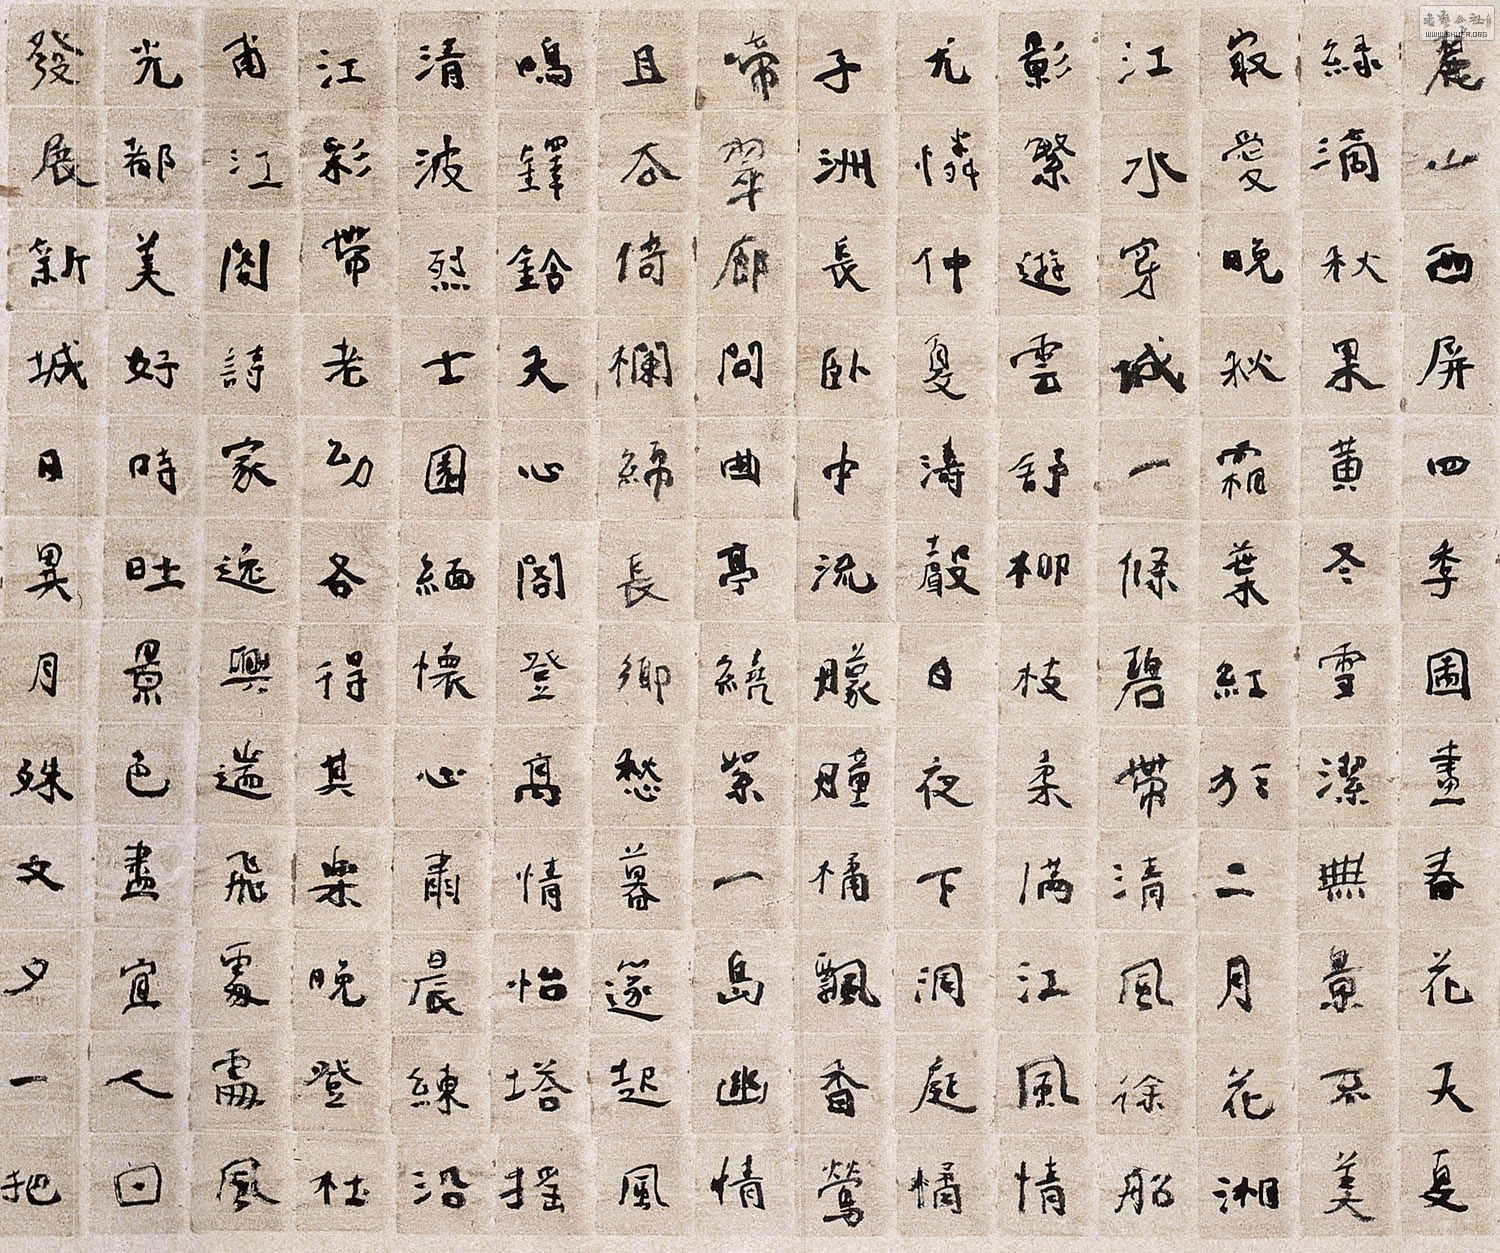 麓山西屏四季圖畫春花天夏
綠滴秋果黃冬雪潔無景不美
最愛晚秋霜葉紅於二月花湘
江水穿城一條碧帶清風徐船
影繫遊雲舒柳枝柔滿江風情
尤憐仲夏濤聲日夜下洞庭橘
子洲長臥中流朦朧橘飄香鶯
啼翠廊問曲亭繞紫一島幽情
且吞倚欄綿長鄉愁暮篷起風
鳴鐸鈴天心閣登高情怡塔搖
清波烈士園緬懷心肅晨練沿
江彩帶老幼各得其樂晚登杜
甫江閣詩家逸興遄飛霧靄風
光都美好時旺景色盡宜人回
發展新城日異月殊文夕一把
書藝公社
WWW.SHUFA.ORG